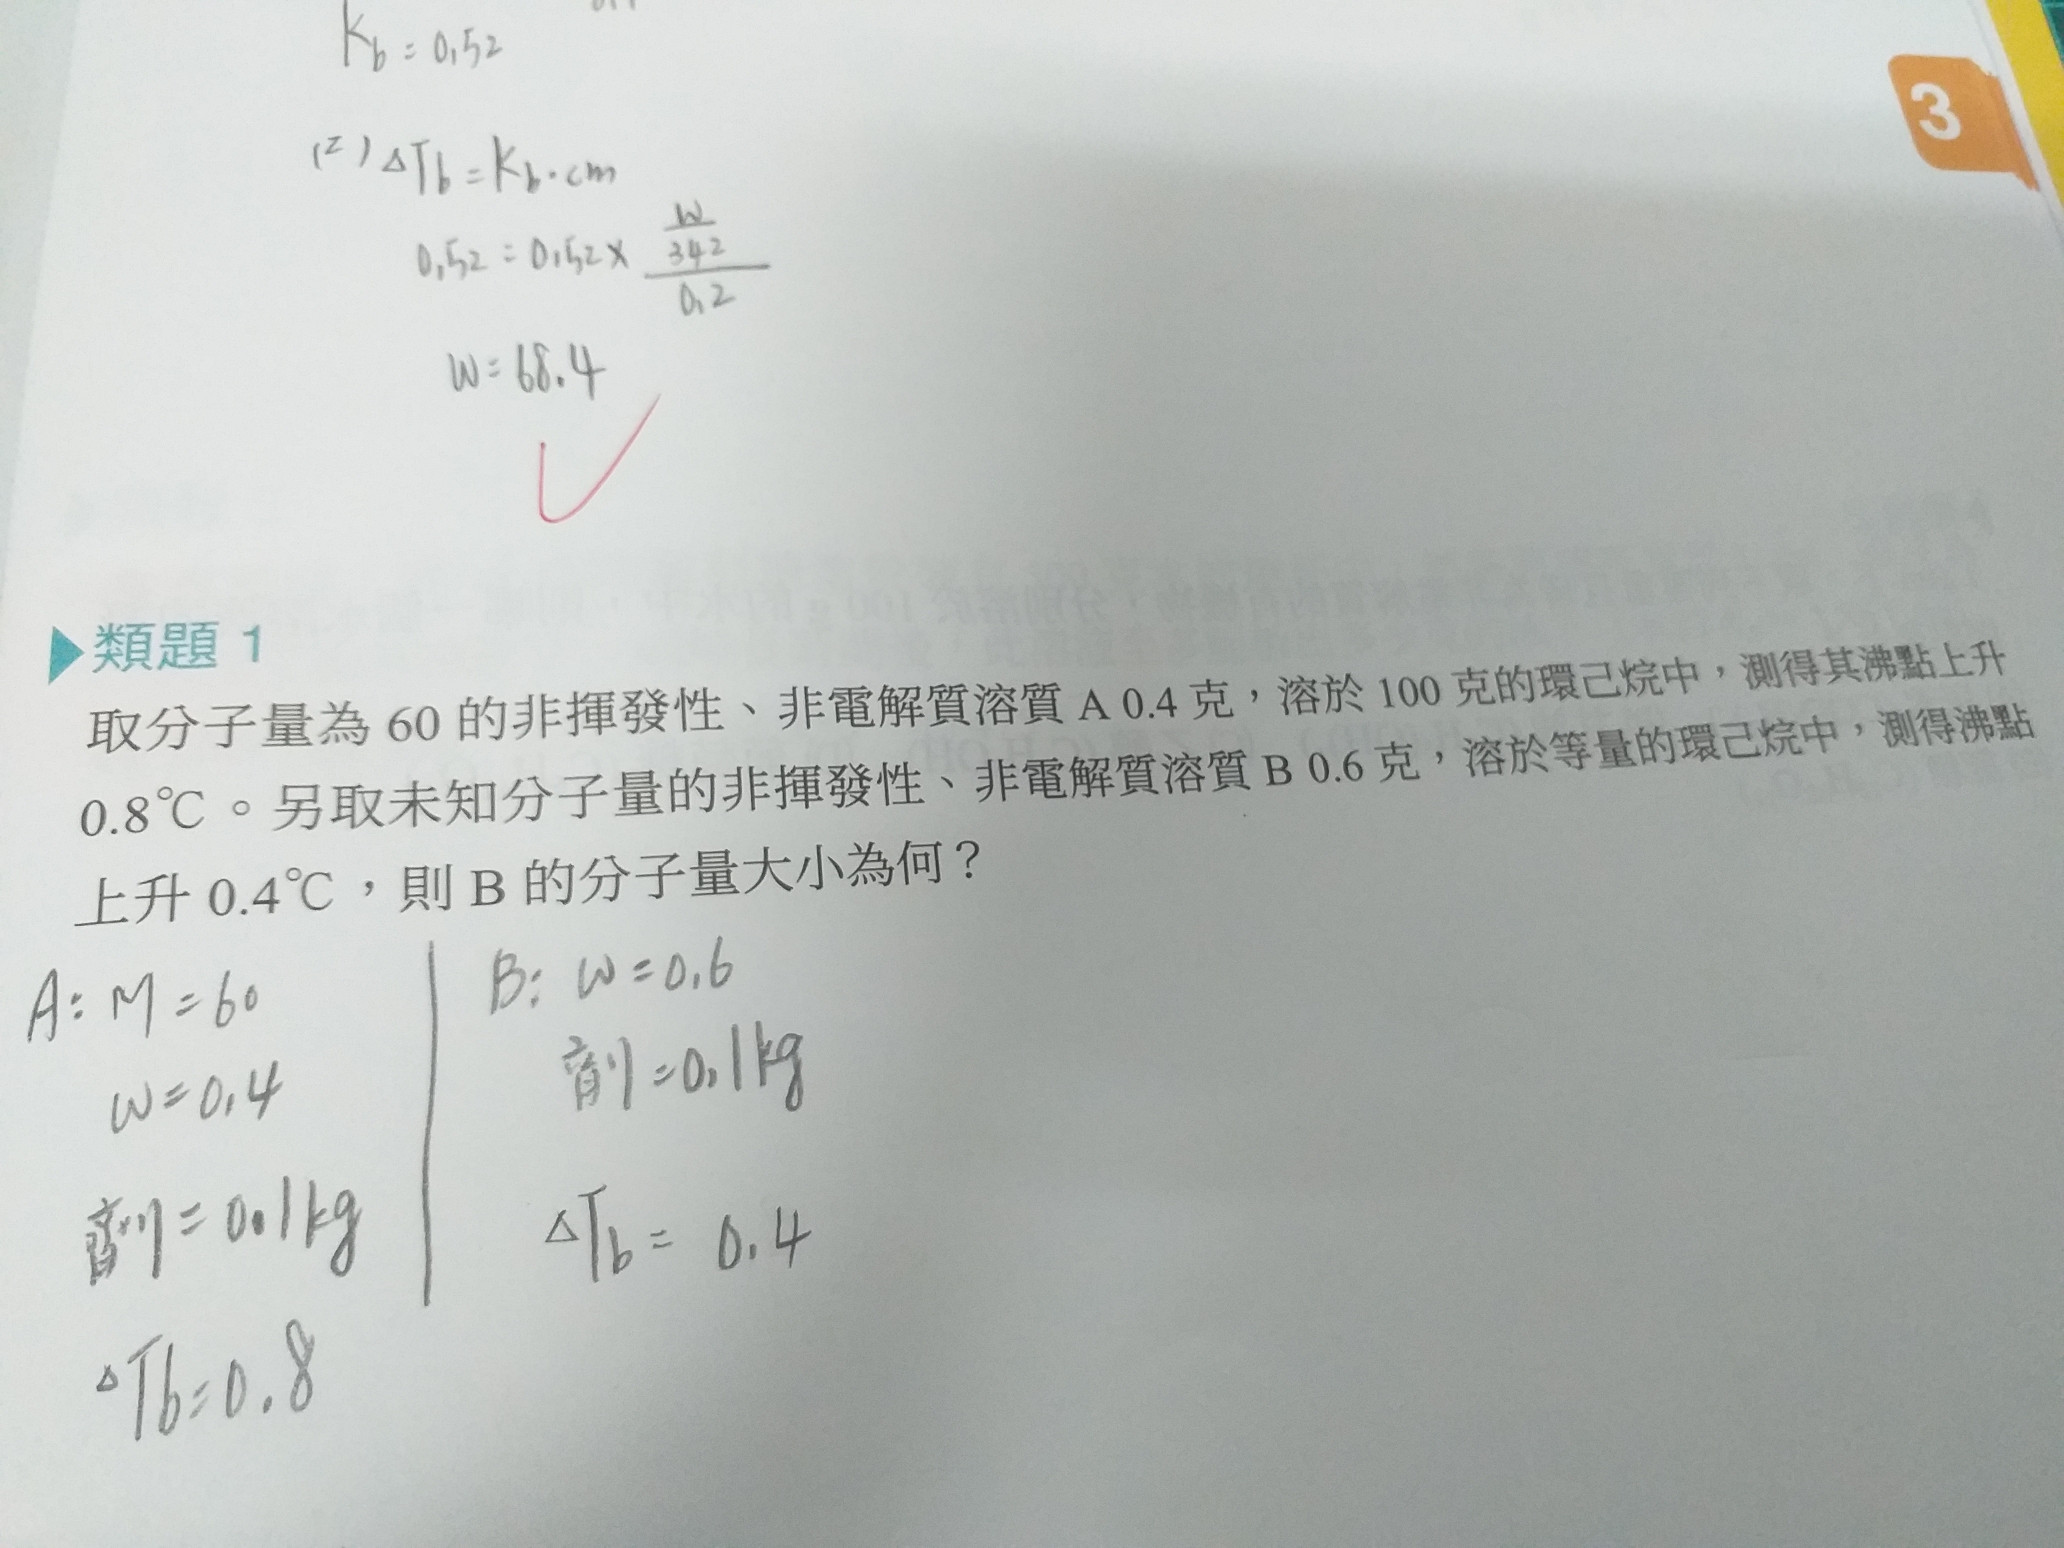 Kb = 0.52
3
(2) ΔTb = Kb · cm
0.52 = 0.52 × W/342 / 0.2
W = 68.4
▶類題 1
取分子量為 60 的非揮發性、非電解質溶質 A 0.4 克，溶於 100 克的環己烷中，測得其沸點上升
0.8℃。另取未知分子量的非揮發性、非電解質溶質 B 0.6 克，溶於等量的環己烷中，測得沸點
上升 0.4℃，則 B 的分子量大小為何？
A: M = 60
W = 0.4
劑 = 0.1kg
ΔTb = 0.8
B: W = 0.6
劑 = 0.1kg
ΔTb = 0.4